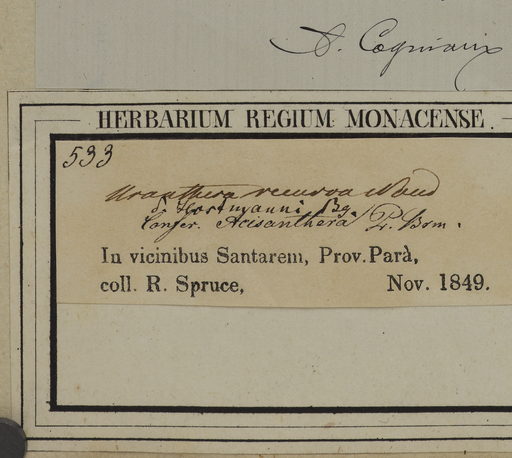 A. Cogniaux
HERBARIUM REGIUM MONACENSE.
533
Uranthera recurva Naud
Hostmanni Bg.
Confer. Acisanthera
In vicinibus Santarem, Prov. Parà,
coll. R. Spruce, Nov. 1849.